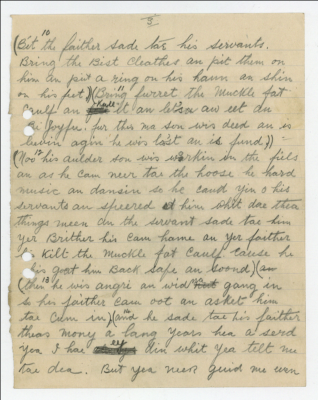 3
(But the faither sade tae his servants.
Bring the Bist Cleathes an pit them on
him an pit a ring on his haun an shin
on his fet)(Bring furret the muckle fat
Caulf an Kull it an let us aw eet an
Bi Joyfu. fur this ma son wis deed an is
livin agin he wis last an is fund))
(Noo his aulder son wis warkin in the fiels
an as he cam neer tae the hoose he hard
music an dansin so he caud yin o his
servants an speered at him whit dae thea
things meen an the servant sade tae him
Yer Brither his cam hame an Yer faither
is kilt the muckle fat Caulf cause he
his goat him Back safe an soond)(an
this he wis angri an wid gang in
so his faither cam oot an asket him
tae cum in)(and he sade tae his faither
theas mony a lang years hea a serd
Yea I hae din whit Yea telt me
tae dea. But yea neer geid me urn